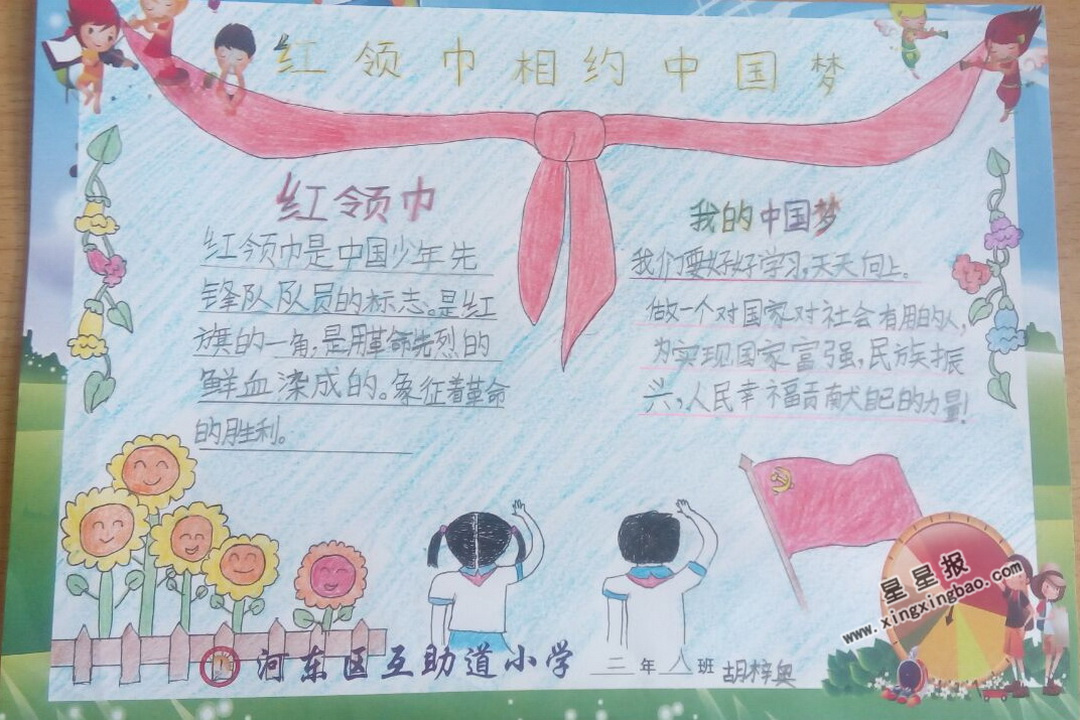 红领巾相约中国梦
红领巾
红领巾是中国少年先
锋队队员的标志。是红
旗的一角,是用革命先烈的
鲜血染成的。象征着革命
的胜利。
我的中国梦
我们要好好学习,天天向上。
做一个对国家对社会有用的人,
为实现国家富强,民族振
兴,人民幸福贡献自己的力量!
星星报
www.xingxingbao.com
河东区互助道小学 二年八班 胡梓奥